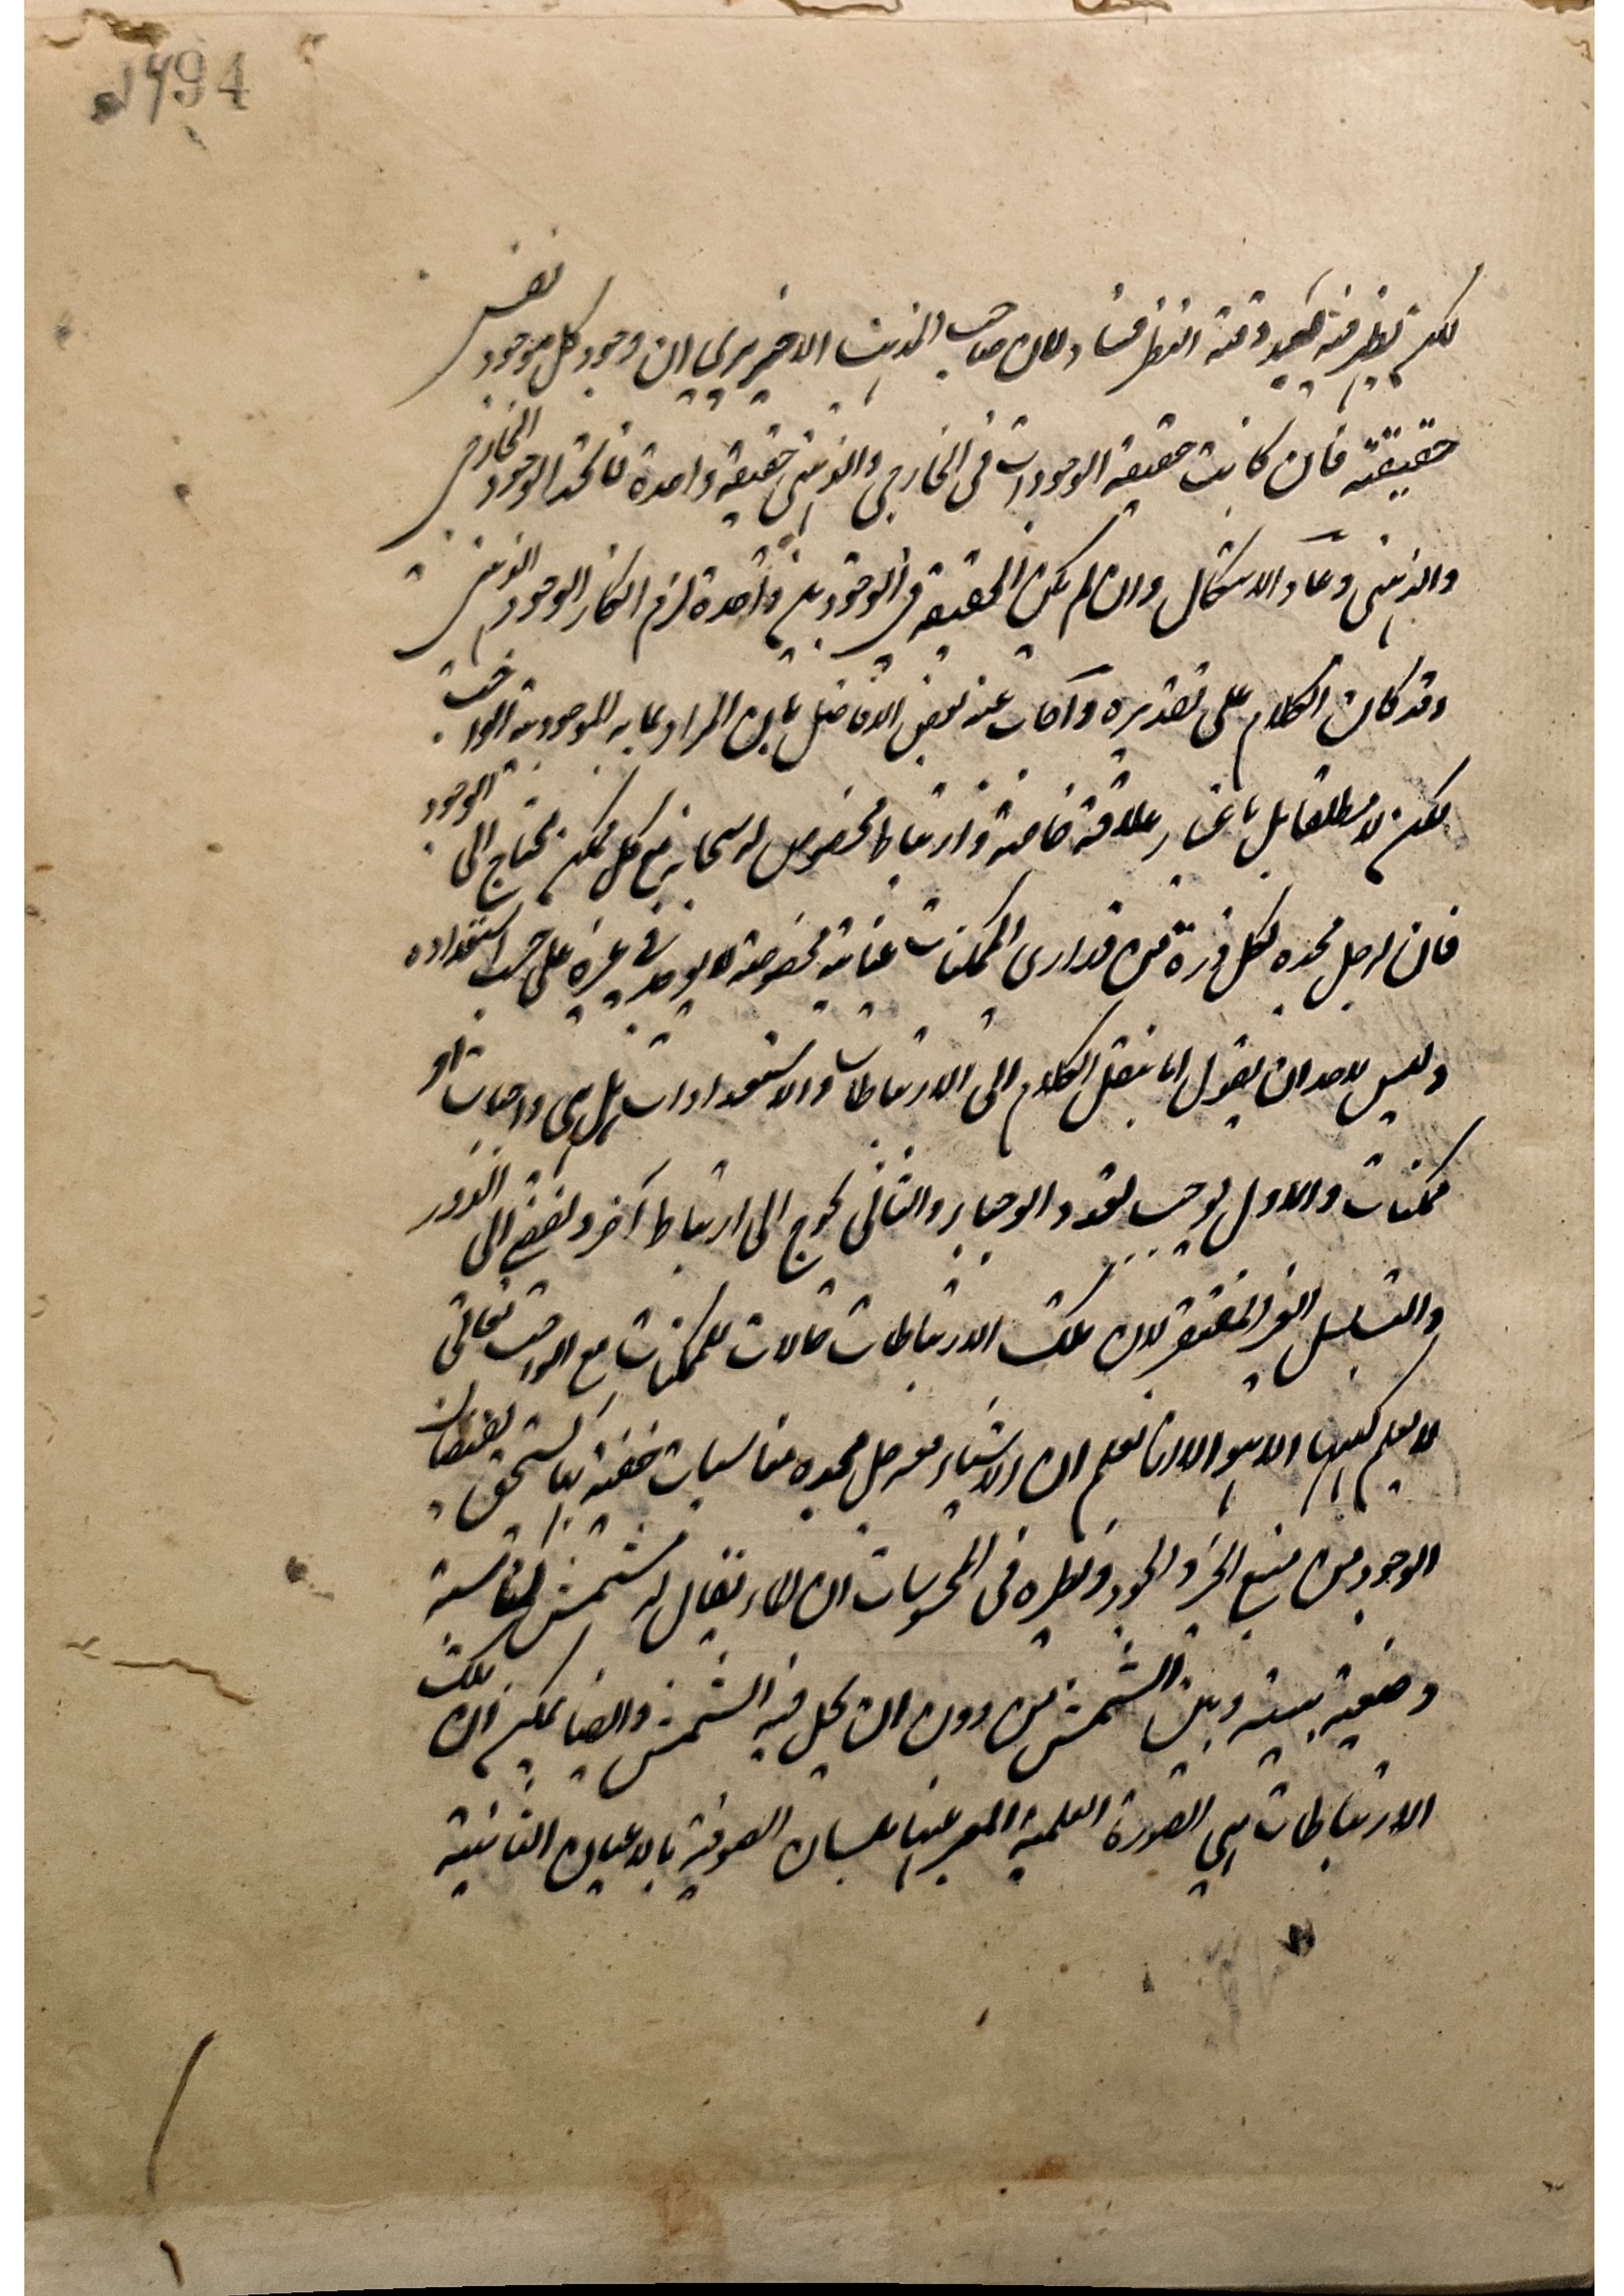 1494
لكن يظهر فيه بعد دقة النظر فساد لان صاحب المذهب الاخير يرى ان وجود كل موجود نفس
حقيقته فان كانت حقيقة الوجودات في الخارجي والذهني حقيقة واحدة فاتحد الوجود الخارجي
والذهني وعاد الاشكال وان لم يكن الحقيقة في الوجودين واحدة لزم انكار الوجود الذهني
وقد كان الكلام على تقديره واجاب عنه بعض الافاضل بان المراد بما به الموجودية الواجب
لكن لا مطلقا بل باعتبار علاقة خاصة وارتباط مخصوص له سبحانه مع كل ممكن محتاج الى الوجود
فان له جل مجده لكل ذرة من ذراري الممكنات عناية مخصوصة لا يوجد في غيره على حسب استعداده
وليس لاحد ان يقول انا ننقل الكلام الى الارتباطات والاستعدادات هل هي واجبات او
ممكنات والاول يوجب تعدد الوجباء والثاني يحوج الى ارتباط آخر ويفضي الى الدور
والتسلسل الغير المفتقر لان تلك الارتباطات حالات للممكنات مع الواجب تعالى
لا يعلم كنهها الا هو الا انا نعلم ان للاشياء معه جل مجده مناسبات خفية بها يستحق لفيضان
الوجود من منبع الخير والجود ونظيره في المحسوسات ان الماء يقال له مشمس لمناسبة
وضعية بينه وبين الشمس من دون ان يحل فيه الشمس وايضا يمكن ان تلك
الارتباطات هي الصورة العلمية المعبر عنها بلسان الصوفية بالاعيان الثابتة